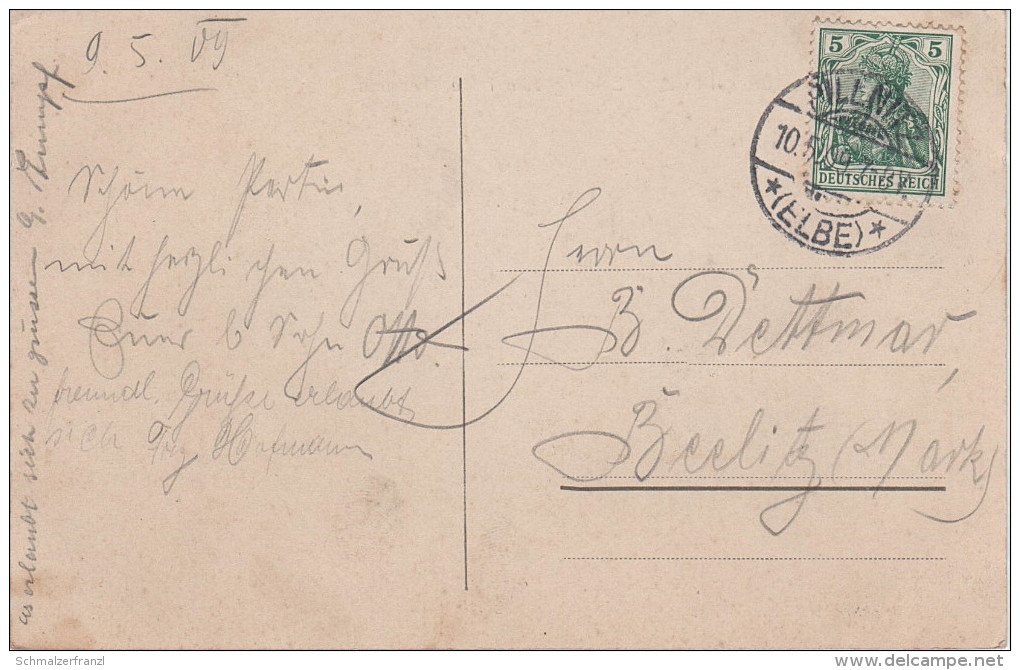 9. 5. 09
Schöne Partie,
mit herzlichen Gruß
Euer l. Sohn Otto.
freundl. Grüße erlaubt
sich Hofmann
es erlaubt sich zu grüssen G.
5 5
DEUTSCHES REICH
PILLNITZ
10.5.09
*(ELBE)*
Herrn
B. Dettmar
Beelitz (Mark)
Schmalzerfranzl
delcampe.net